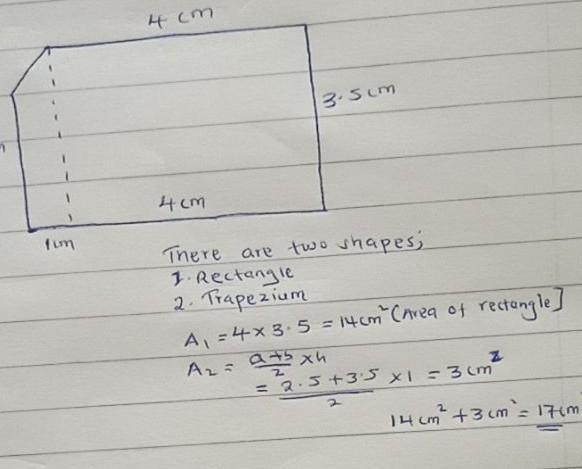 4 cm
3.5 cm
4 cm
1cm
There are two shapes;
1. Rectangle
2. Trapezium
A₁ = 4 × 3.5 = 14cm² (Area of rectangle]
A₂ = a+b/2 × h
= 2.5 + 3.5/2 × 1 = 3cm²
14 cm² + 3 cm² = 17cm